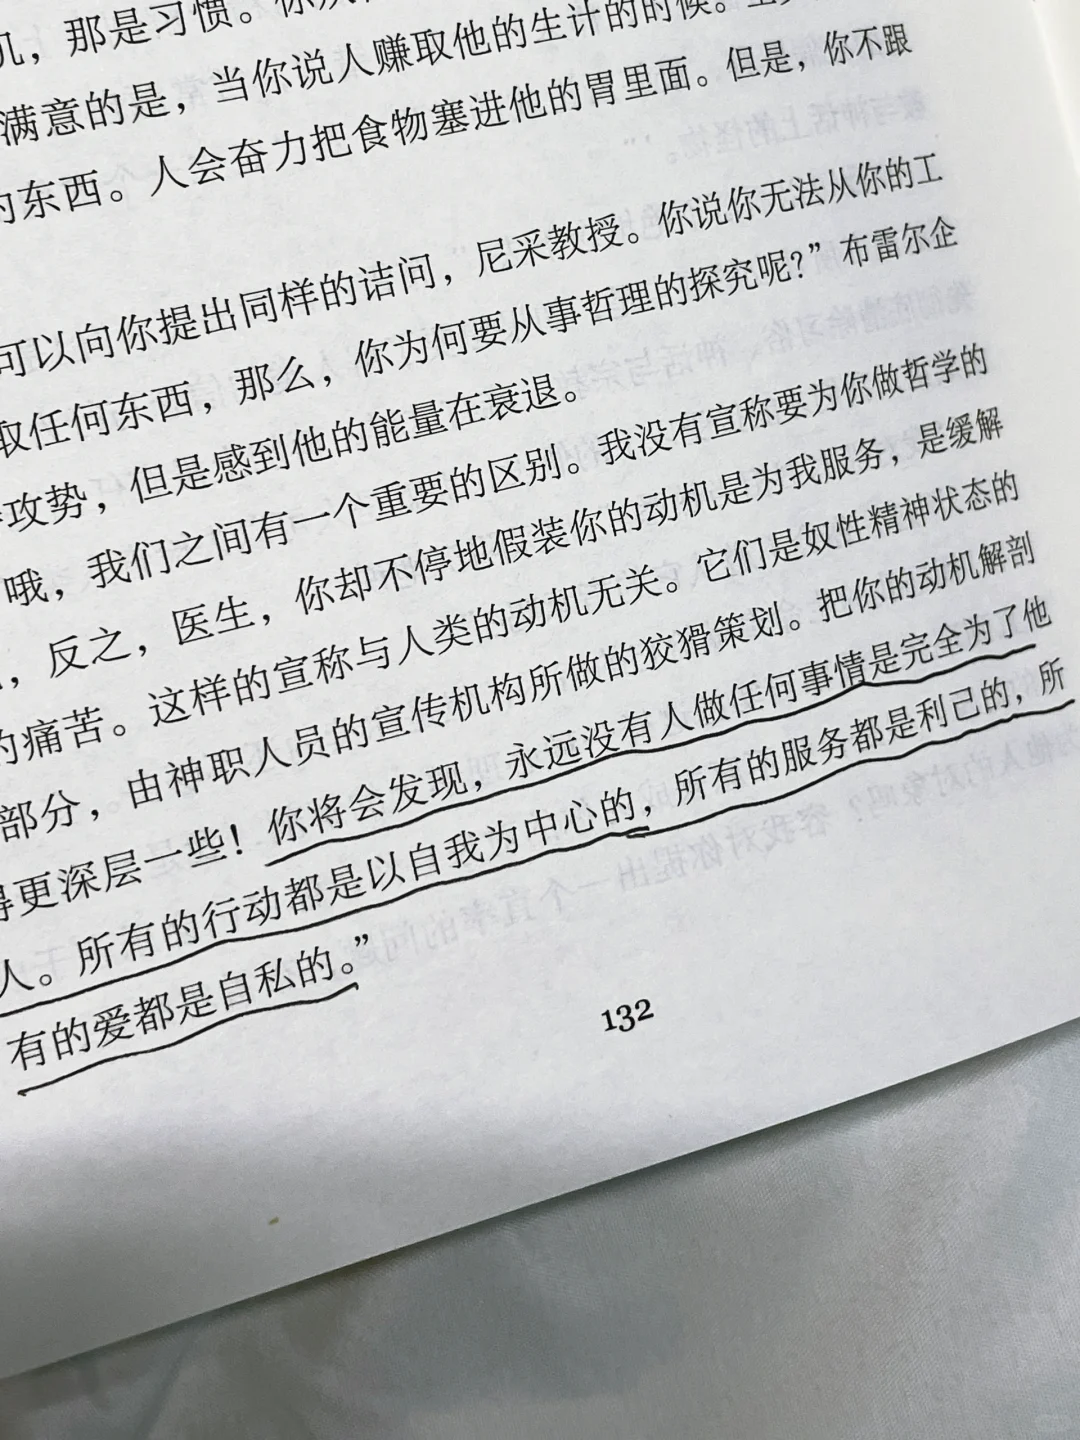 那是习惯。你
满意的是，当你说人赚取他的生计的时候。
东西。人会奋力把食物塞进他的胃里面。但是，你不跟
可以向你提出同样的诘问，尼采教授。你说你无法从你的工
取任何东西，那么，你为何要从事哲理的探究呢?”布雷尔企
攻势，但是感到他的能量在衰退。
哦，我们之间有一个重要的区别。我没有宣称要为你做哲学的
，反之，医生，你却不停地假装你的动机是为我服务，是缓解
的痛苦。这样的宣称与人类的动机无关。它们是奴性精神状态的
部分，由神职人员的宣传机构所做的狡猾策划。把你的动机解剖
得更深层一些！你将会发现，永远没有人做任何事情是完全为了他
人。所有的行动都是以自我为中心的，所有的服务都是利己的，所
有的爱都是自私的。”
132